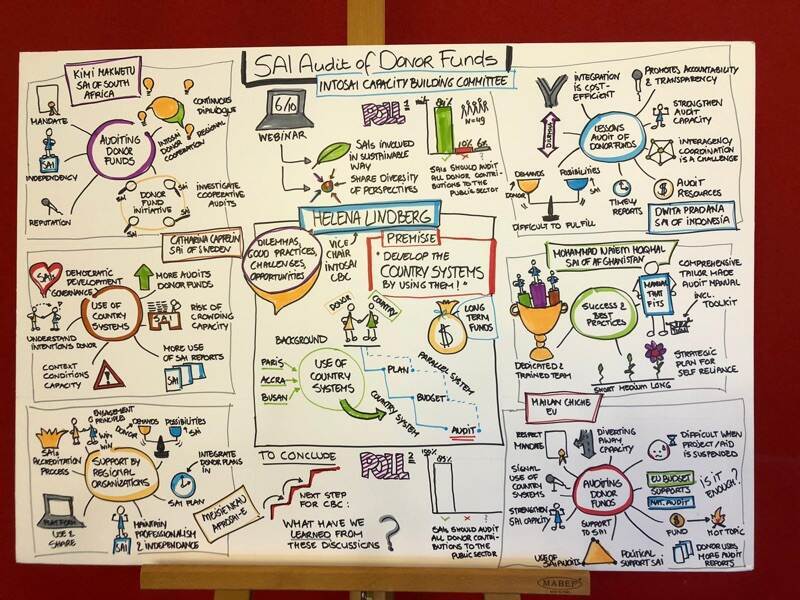 SAI AUDIT OF DONOR FUNDS
INTOSAI CAPACITY BUILDING COMMITTEE
KIMI MAKWETU
SAI OF SOUTH
AFRICA
MANDATE
INDEPENDENCY
SAI
REPUTATION
AUDITING
DONOR
FUNDS
CONTINUOUS
DIALOGUE
INTOSAI
DONOR
COOPERATION
REGIONAL
SAI
SAI
SAI
SAI
DONOR
FUND
INITIATIVE
INVESTIGATE
COOPERATIVE
AUDITS
6/10
WEBINAR
SAIS INVOLVED
IN SUSTAINABLE
WAY
SHARE DIVERSITY
OF PERSPECTIVES
POLL 1
84%
10%
6%
N=49
SAIS SHOULD AUDIT
ALL DONOR CONTRI-
BUTIONS TO THE
PUBLIC SECTOR
INTEGRATION
IS COST-
EFFICIENT
PROMOTES ACCOUNTABILITY
& TRANSPARENCY
STRENGTHEN
AUDIT
CAPACITY
INTERAGENCY
COORDINATION
IS A CHALLENGE
AUDIT
RESOURCES
TIMELY
REPORTS
LESSONS
AUDIT OF
DONOR FUNDS
DILEMMA
DEMANDS
DONOR
POSSIBILITIES
SAI
DIFFICULT TO FULFILL
DWITA PRADANA
SAI OF INDONESIA
CATHARINA CAPPELIN
SAI OF SWEDEN
SAIS
DEMOCRATIC
DEVELOPMENT
GOVERNANCE
UNDERSTAND
INTENTIONS DONOR
CONTEXT
CONDITIONS
CAPACITY
USE OF
COUNTRY
SYSTEMS
MORE AUDITS
DONOR FUNDS
SAI
RISK OF
CROWDING
CAPACITY
MORE USE
OF SAI REPORTS
SAI
HELENA LINDBERG
VICE
CHAIR
INTOSAI
CBC
DILEMMAS,
GOOD PRACTICES,
CHALLENGES,
OPPORTUNITIES
PREMISE
"DEVELOP THE
COUNTRY SYSTEMS
BY USING THEM!"
DONOR
COUNTRY
$
LONG
TERM
FUNDS
BACKGROUND
PARIS
ACCRA
BUSAN
USE OF
COUNTRY
SYSTEMS
PLAN
BUDGET
AUDIT
PARALLEL SYSTEM
COUNTRY SYSTEM
MOHAMMAD NAIEM HOQMAL
SAI OF AFGHANISTAN
DEDICATED &
TRAINED TEAM
SUCCESS &
BEST
PRACTICES
MANUAL
THAT
FITS
COMPREHENSIVE
TAILOR MADE
AUDIT MANUAL
INCL.
TOOLKIT
STRATEGIC
PLAN FOR
SELF RELIANCE
SHORT MEDIUM LONG
ENGAGEMENT
PRINCIPLES
WIN
WIN
DEMANDS
DONOR
POSSIBILITIES
SAI
SAIS
ACCREDITATION
PROCESS
SUPPORT BY
REGIONAL
ORGANIZATIONS
INTEGRATE
DONOR PLANS
IN
SAI PLAN
PLATFORM
USE &
SHARE
SAI
MAINTAIN
PROFESSIONALISM
& INDEPENDENCE
MEISIE NKAU
AFROSAI-E
TO CONCLUDE
NEXT STEP
FOR CBC:
WHAT HAVE WE
LEARNED FROM
THESE DISCUSSIONS
?
POLL 2
100%
SAIS SHOULD AUDIT
ALL DONOR CONTRI-
BUTIONS TO THE
PUBLIC SECTOR
MAILAN CHICHE
EU
RESPECT
MANDATE
DIVERTING
AWAY
CAPACITY
DIFFICULT WHEN
PROJECT/AID
IS SUSPENDED
SIGNAL
USE OF
COUNTRY
SYSTEMS
AUDITING
DONOR
FUNDS
EU BUDGET
SUPPORTS
NAT. AUDIT
IS IT
ENOUGH?
STRENGTHEN
SAI CAPACITY
SUPPORT
TO SAI
$
FUND
HOT TOPIC
USE OF
SAI AUDITS
POLITICAL
SUPPORT SAI
DONOR USES
MORE AUDIT
REPORTS
MABEF